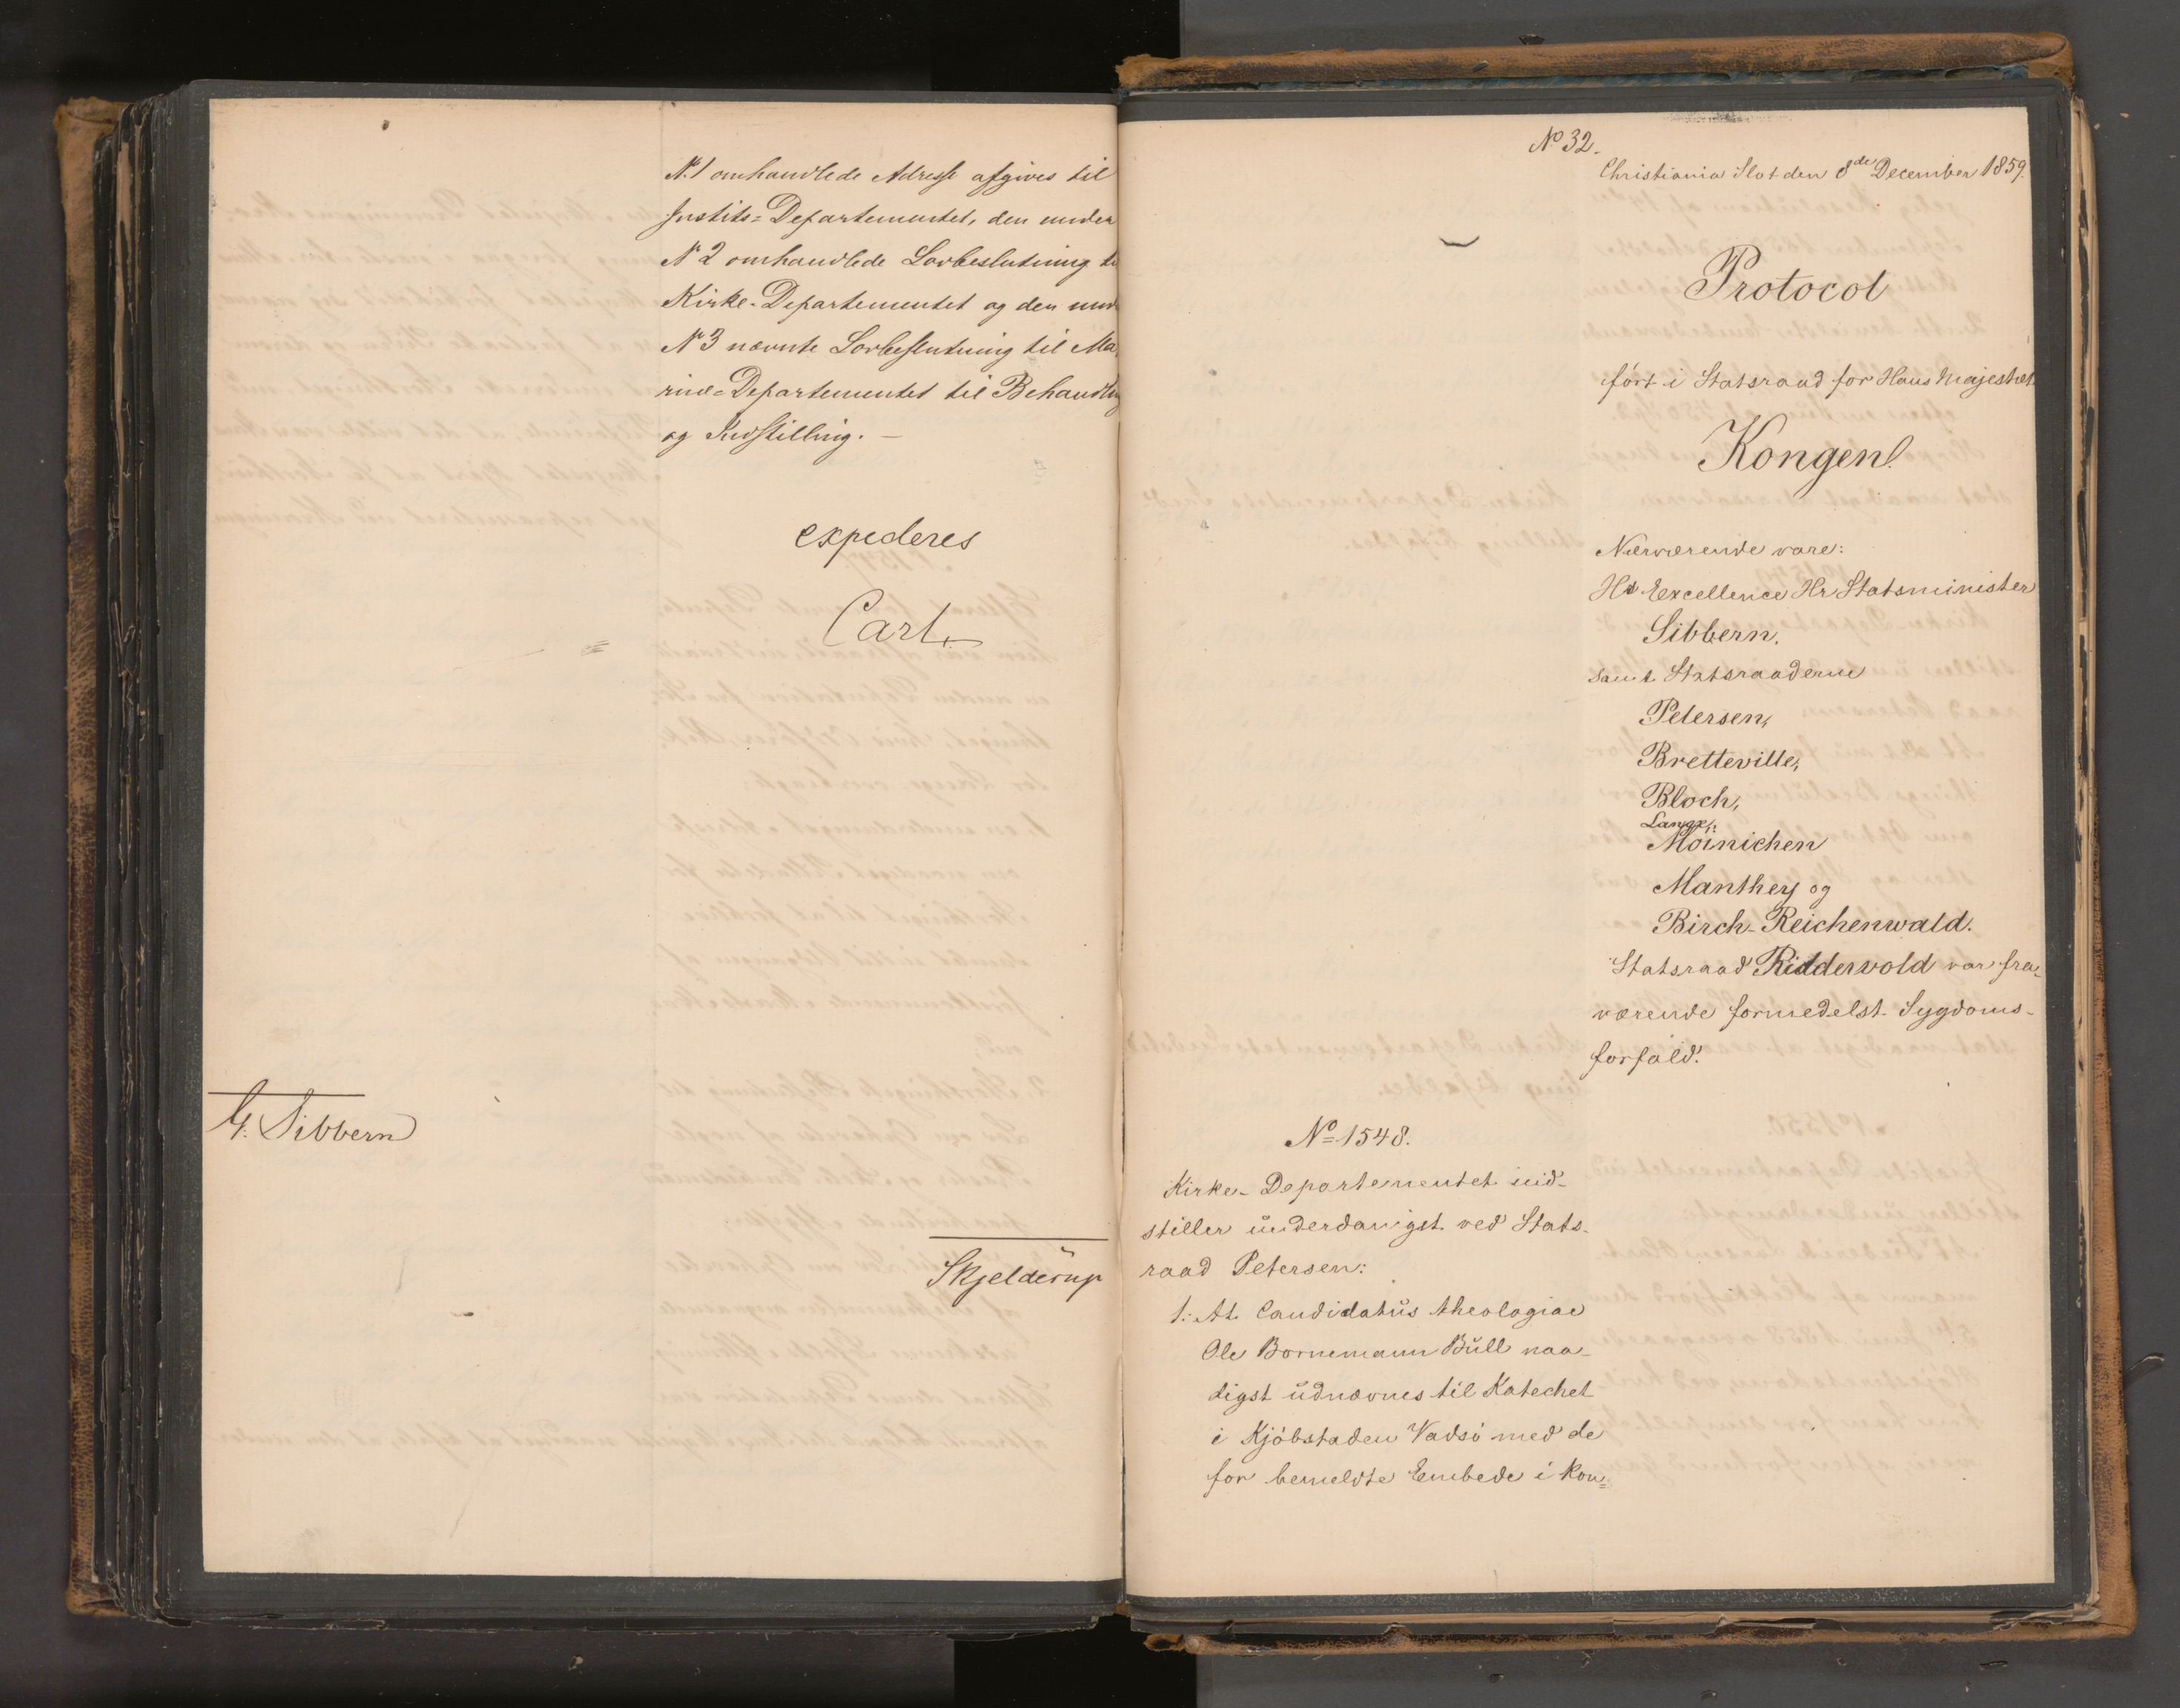 N. 1 omhandlede Adresse afgives til
Justits=Departementet, den under
N 2 omhandlede Lovbeslutning ti
Kirke-Departementet og den und
N 3 nævnte Lovbeslutning til Ma,
rine=Departementet til Behandling
og Indstilling. —
expederes
Carl.
G. Sibbern
Skjelderup
No 32.
Christiania Slot den 8de December 1859.
Protocol
ført i Statsraad for Hans Majestæt
Kongen.
Nærværende vare:
Hs Excellence Hr Statsminister
Sibbern.
samt Statsraaderne
Petersen,
Bretteville,
Bloch,
Lange,
Möinichen
Manthey og
Birch-Reichenwald.
Statsraad Riddervold var fra-
værende formedelst Sygdoms-
forfald.
No 1548.
Kirke-Departementet ind-
stiller underdanigst ved Stats-
raad Petersen:
1. At Candidatus theologiae
Ole Bornemann Bull naa-
digst udnævnes til Katechet
i Kjøbstaden Vadsö med de
for bemeldte Embede i Kon=